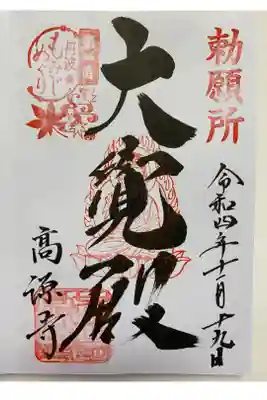 勅願所
令和四年十一月十九日
大覚殿
丹波
もみじめぐり
高源寺